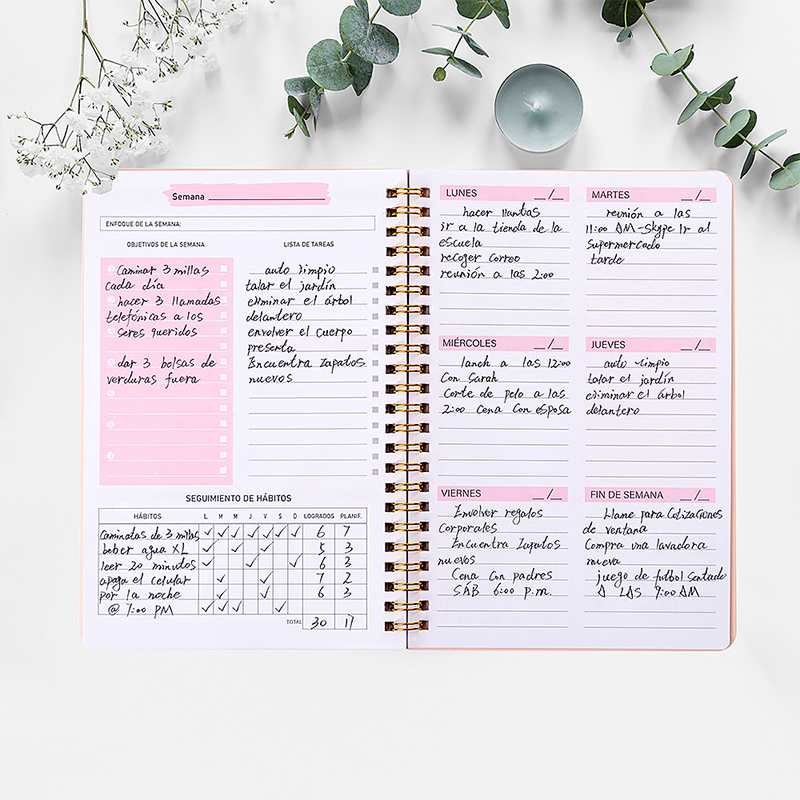 Semana
ENFOQUE DE LA SEMANA:
OBJETIVOS DE LA SEMANA
Caminar 3 millas
cada día
hacer 3 llamadas
telefónicas a los
seres queridos
dar 3 bolsas de
verduras fuera
LISTA DE TAREAS
auto limpio
talar el jardín
eliminar el árbol
delantero
envolver el cuerpo
presenta
Encuentra zapatos
nuevos
SEGUIMIENTO DE HÁBITOS
HÁBITOS L M M J V S D LOGRADOS PLANIF.
caminatas de 3 millas ✓ ✓ ✓ ✓ ✓ ✓ ✓ 6 7
beber agua XL ✓ ✓ ✓ 5 3
leer 20 minutos ✓ ✓ ✓ 6 3
apaga el celular ✓ ✓ 7 2
por la noche ✓ ✓ ✓ 6 3
@ 7:00 PM ✓ ✓ ✓ ✓
TOTAL 30 17
LUNES __/__
hacer llantas
ir a la tienda de la
escuela
recoger correo
reunión a las 2:00
MARTES __/__
reunión a las
11:00 AM -Skype Ir al
supermercado
tarde
MIÉRCOLES __/__
lanch a las 12:00
Con Sarah
Corte de pelo a las
2:00 Cena Con esposa
JUEVES __/__
auto limpio
talar el jardín
eliminar el árbol
delantero
VIERNES __/__
Envolver regalos
corporales
Encuentra zapatos
nuevos
Cena con padres
SÁB 6:00 p.m.
FIN DE SEMANA __/__
Llame para Cotizaciones
de ventana
Compra una lavadora
nueva
juego de futbol sentado
A LAS 9:00 AM